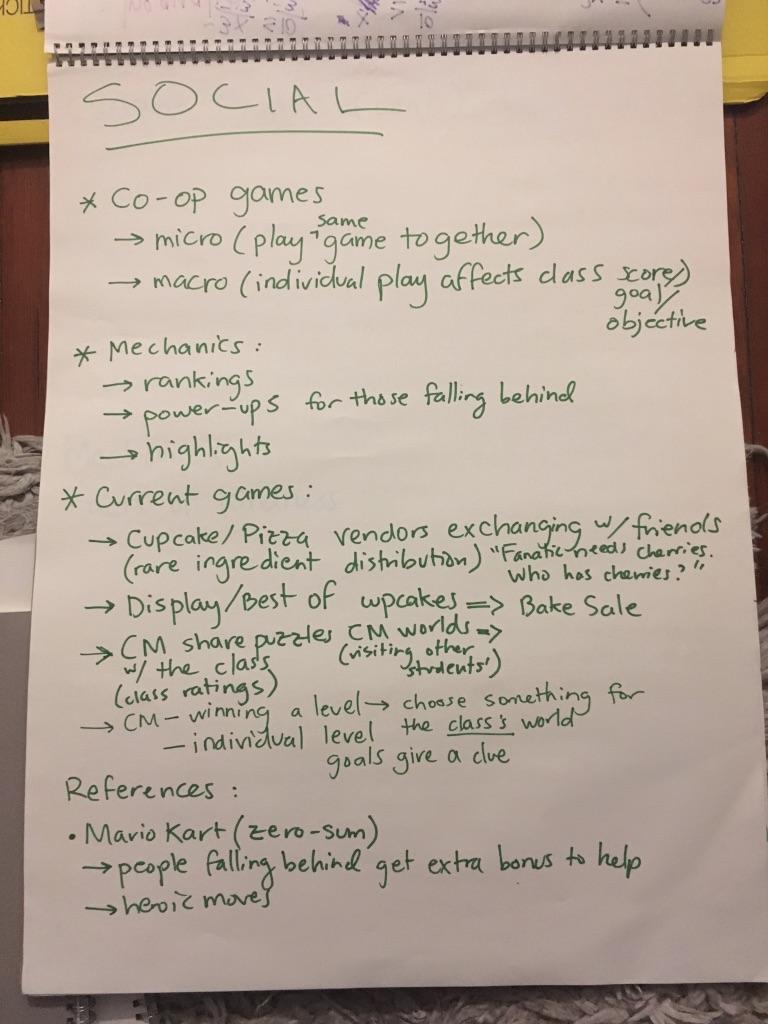 SOCIAL
* Co-op games
→ micro (play same game together)
→ macro (individual play affects class score/)
goal/
objective
* Mechanics :
→ rankings
→ power-ups for those falling behind
→ highlights
* Current games :
→ Cupcake/Pizza vendors exchanging w/ friends
(rare ingredient distribution) "Fanatic needs cherries.
Who has cherries?"
→ Display/Best of cupcakes => Bake Sale
→ CM share puzzles CM worlds =>
w/ the class (visiting other
(class ratings) students')
→ CM - winning a level → choose something for
- individual level the class's world
goals give a clue
References :
• Mario Kart (zero-sum)
→ people falling behind get extra bonus to help
→ heroic moves